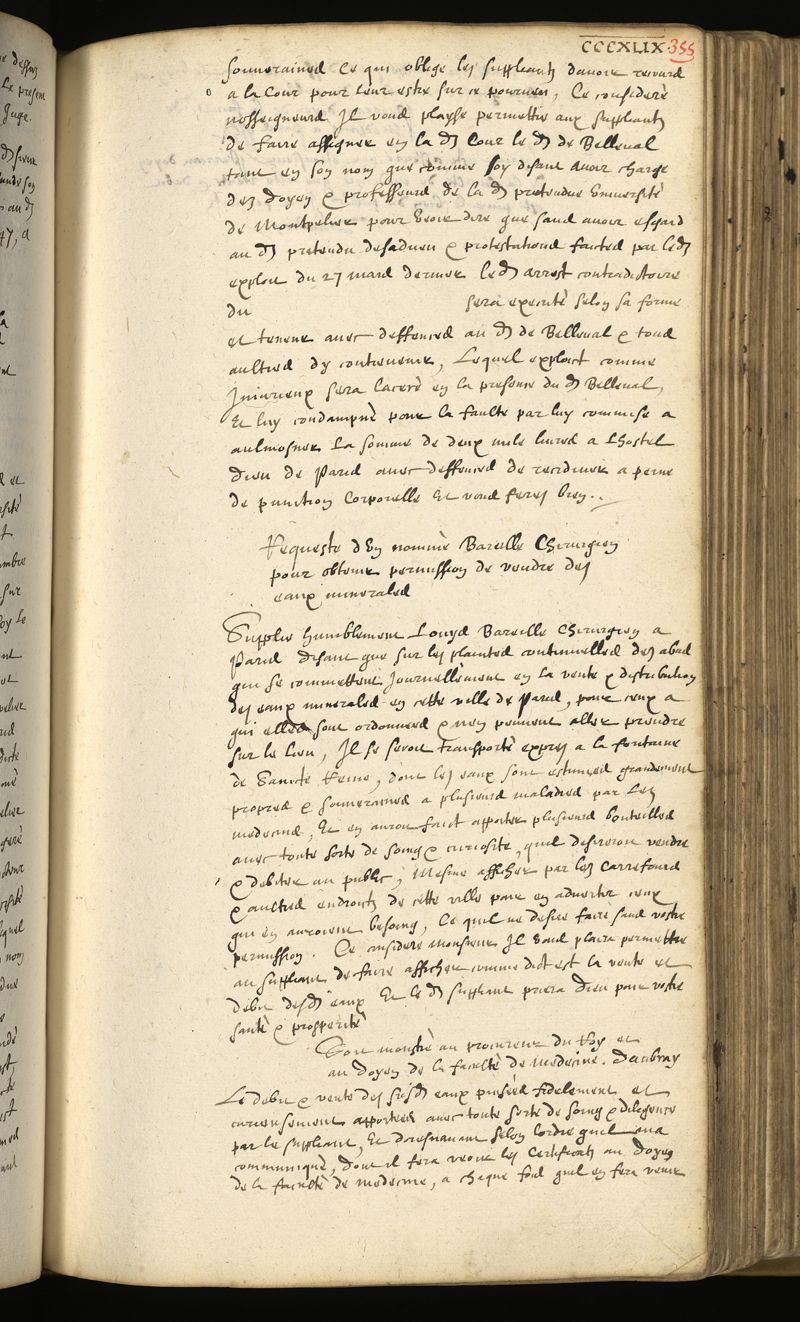 CCCXLIX. 355
souveraines Ce qui oblige les suppliants d'avoir recours
a la Cour pour leur estre sur ce pourveu, Ce considere
nosseigneurs Il vous plaise permettre aux suppliants
de faire assigner en la d. Cour le d. de Belleval
tant en son nom que comme soy disant avoir charge
des Doyen & professeurs de la d. pretendue Université
de Montpelier pour veoir dire que sans avoir esgard
au d. pretendu desadveu & protestations faictes par led.
exploit du 27 mars dernier led. arrest contradictoire
du sera executé selon sa forme
et teneur avec deffences au d. de Belleval & tous
aultres dy contrevenir, Lequel exploict comme
Iniurieux sera laceré en la presence du d. Belleval,
Et luy condampné pour la faulte par luy commise a
aulmosner La somme de deux mile livres a Lhostel
Dieu de Paris avec deffences de recidiver a peine
de punition Corporelle Et vous feres bien.
Requeste d'Un nommé Bareille Chirurgien
pour obtenir permission de vendre des
eaux minerales
Supplie humblement Louys Bareille Chirurgien a
Paris disant que sur les plaintes continuelles des abus
qui se commettent Journellement en la vente & distribution
des eaux minerales en cette ville de Paris, pour ceux a
qui elles sont ordonnees & nen peuvent aller prendre
sur le lieu, Il se seroit transporté expres a la fontaine
de Saincte Reine, dont les eaux sont estimees grandement
propres & souveraines a plusieurs maladies par les
medecins, Et en auroit faict apporter plusieurs bouteilles
avec toute sorte de soing & curiosite, quil desireroit vendre
& debiter au public, Mesme afficher par les Carrefours
& aultres endroits de cette ville pour en advertir ceux
qui en auroient besoing, Ce quil ne desire faire sans vostre
permission. Ce consideré Monsieur Il vous plaira permettre
au suppliant de faire afficher comme dict est la vente et
debit desd. eaux Et le d. suppliant priera Dieu pour vostre
santé & prosperité
Soit monstré au procureur du Roy et
au Doyen de la faculté de medecine. Daubray
Le debit & vente des susd. eaux puisees fidelement et
curieusement apportees avec toute sorte de soing & diligence
par le suppliant, Et doresnavant selon lordre quil aura
communiqué, dont il fera veoir les Certificats au Doyen
de la faculté de medecine, a chaque fois quil en fera venir